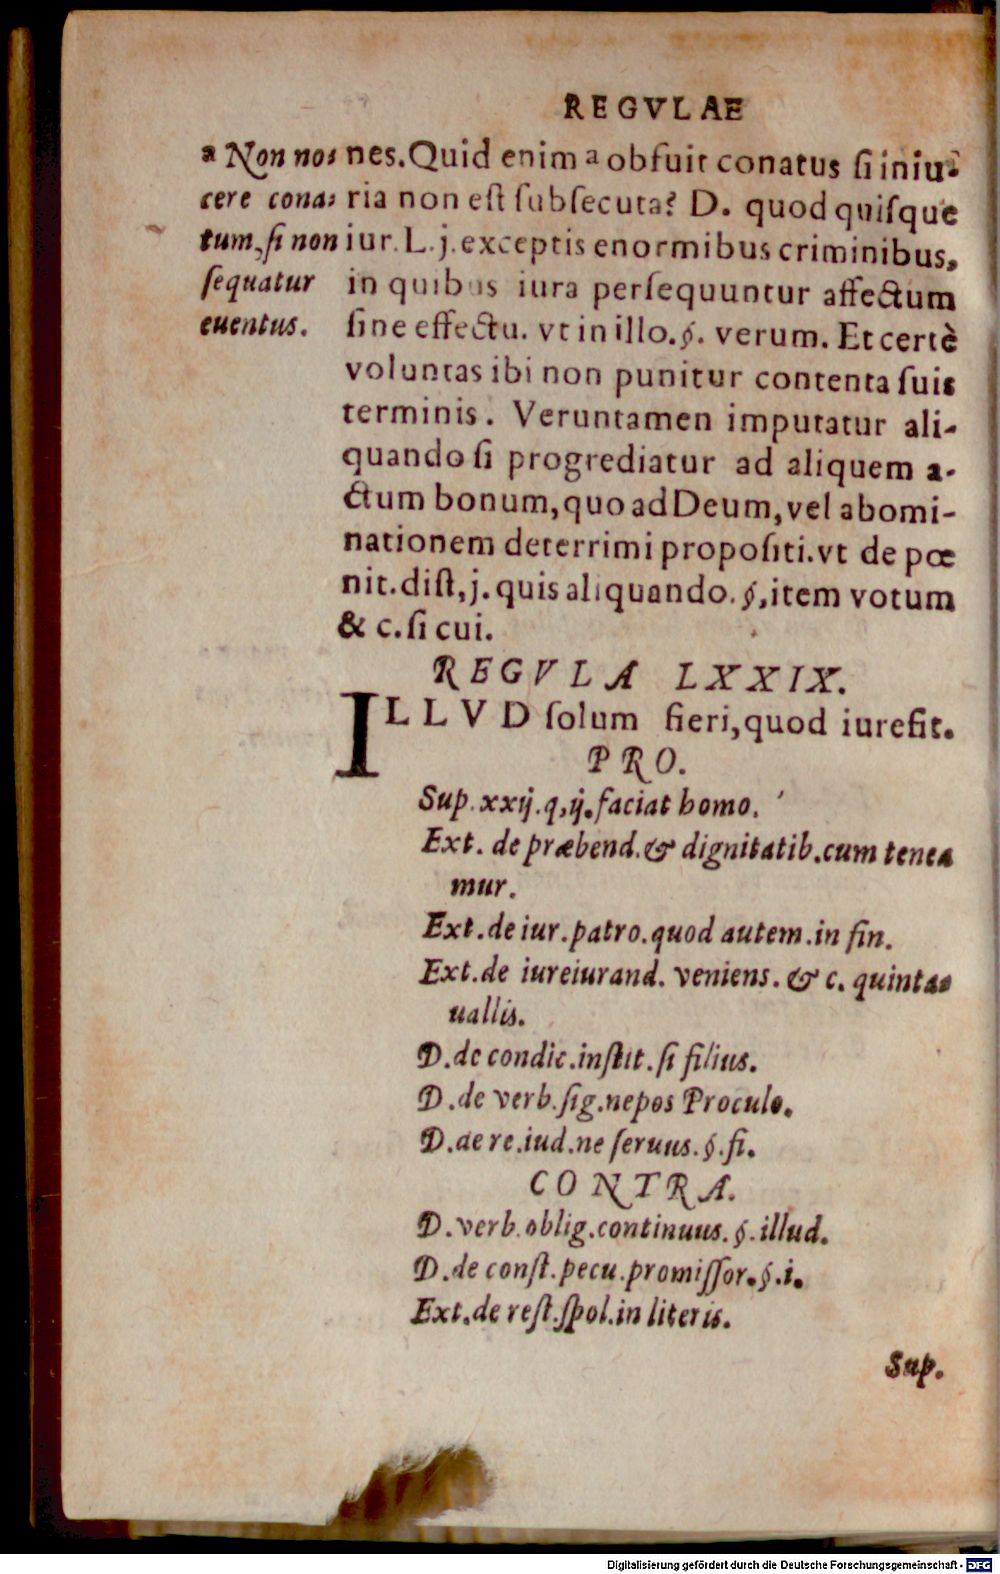 REGVLAE
a Non no=
cere cona=
tum, si non
sequatur
euentus.
nes. Quid enim a obfuit conatus si iniu-
ria non est subsecuta? D. quod quisque
iur. L. j. exceptis enormibus criminibus,
in quibus iura persequuntur affectum
sine effectu. vt in illo. §. verum. Et certè
voluntas ibi non punitur contenta suis
terminis. Veruntamen imputatur ali-
quando si progrediatur ad aliquem a-
ctum bonum, quo ad Deum, vel abomi-
nationem deterrimi propositi. vt de pœ
nit. dist, j. quis aliquando. §, item votum
& c. si cui.
REGVLA LXXIX.
ILLVD solum fieri, quod iure fit.
PRO.
Sup. xxij. q, ij. faciat homo.
Ext. de præbend. & dignitatib. cum tenea
mur.
Ext. de iur. patro. quod autem. in fin.
Ext. de iureiurand. veniens. & c. quinta=
uallis.
D. de condic. instit. si filius.
D. de verb. sig. nepos Proculo.
D. de re. iud. ne seruus. §. si.
CONTRA.
D. verb. oblig. continuus. §. illud.
D. de const. pecu. promissor. §. i.
Ext. de rest. spol. in literis.
Sup.
Digitalisierung gefördert durch die Deutsche Forschungsgemeinschaft - DFG